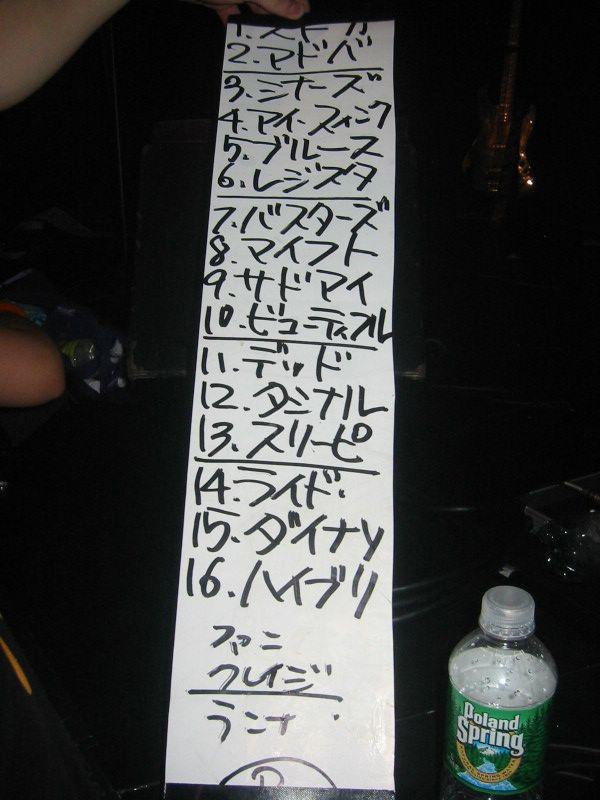 1. ストガ
2. マドバ
3. シナーズ
4. アイ・スィンク
5. ブルース
6. レジスタ
7. バスターズ
8. マイフト
9. サドマイ
10. ビューティフル
11. デッド
12. タミナル
13. スリーピ
14. ライド
15. ダイナソ
16. ハイブリ
ファニ
クレイジ
ラニナ
Poland
Spring